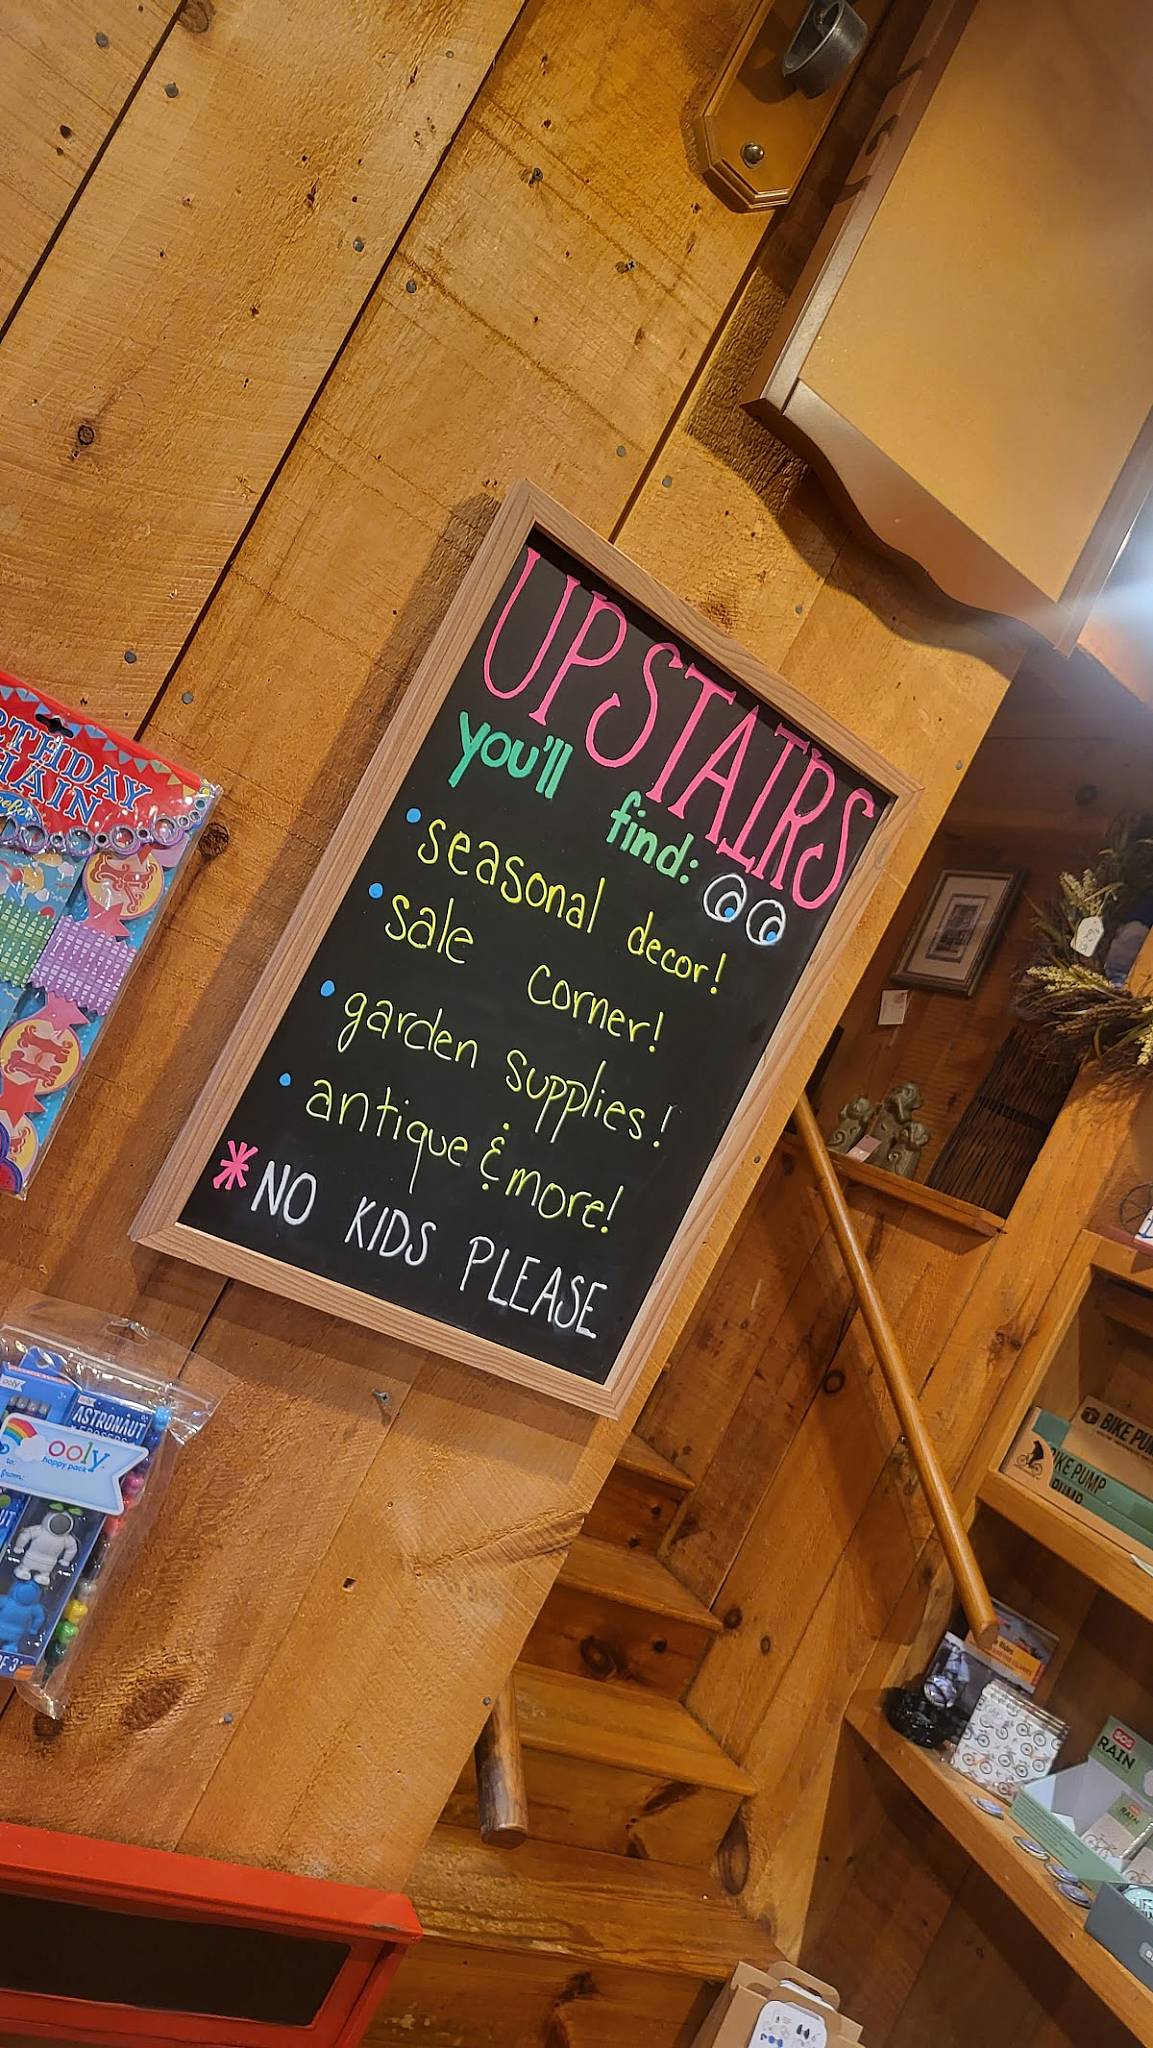 UPSTAIRS
you'll find:
• seasonal decor!
• sale corner!
• garden supplies!
• antique & more!
* NO KIDS PLEASE
ASTRONAUT
ooly
happy pack
to:
from:
BIKE PUMP
SOS
RAIN